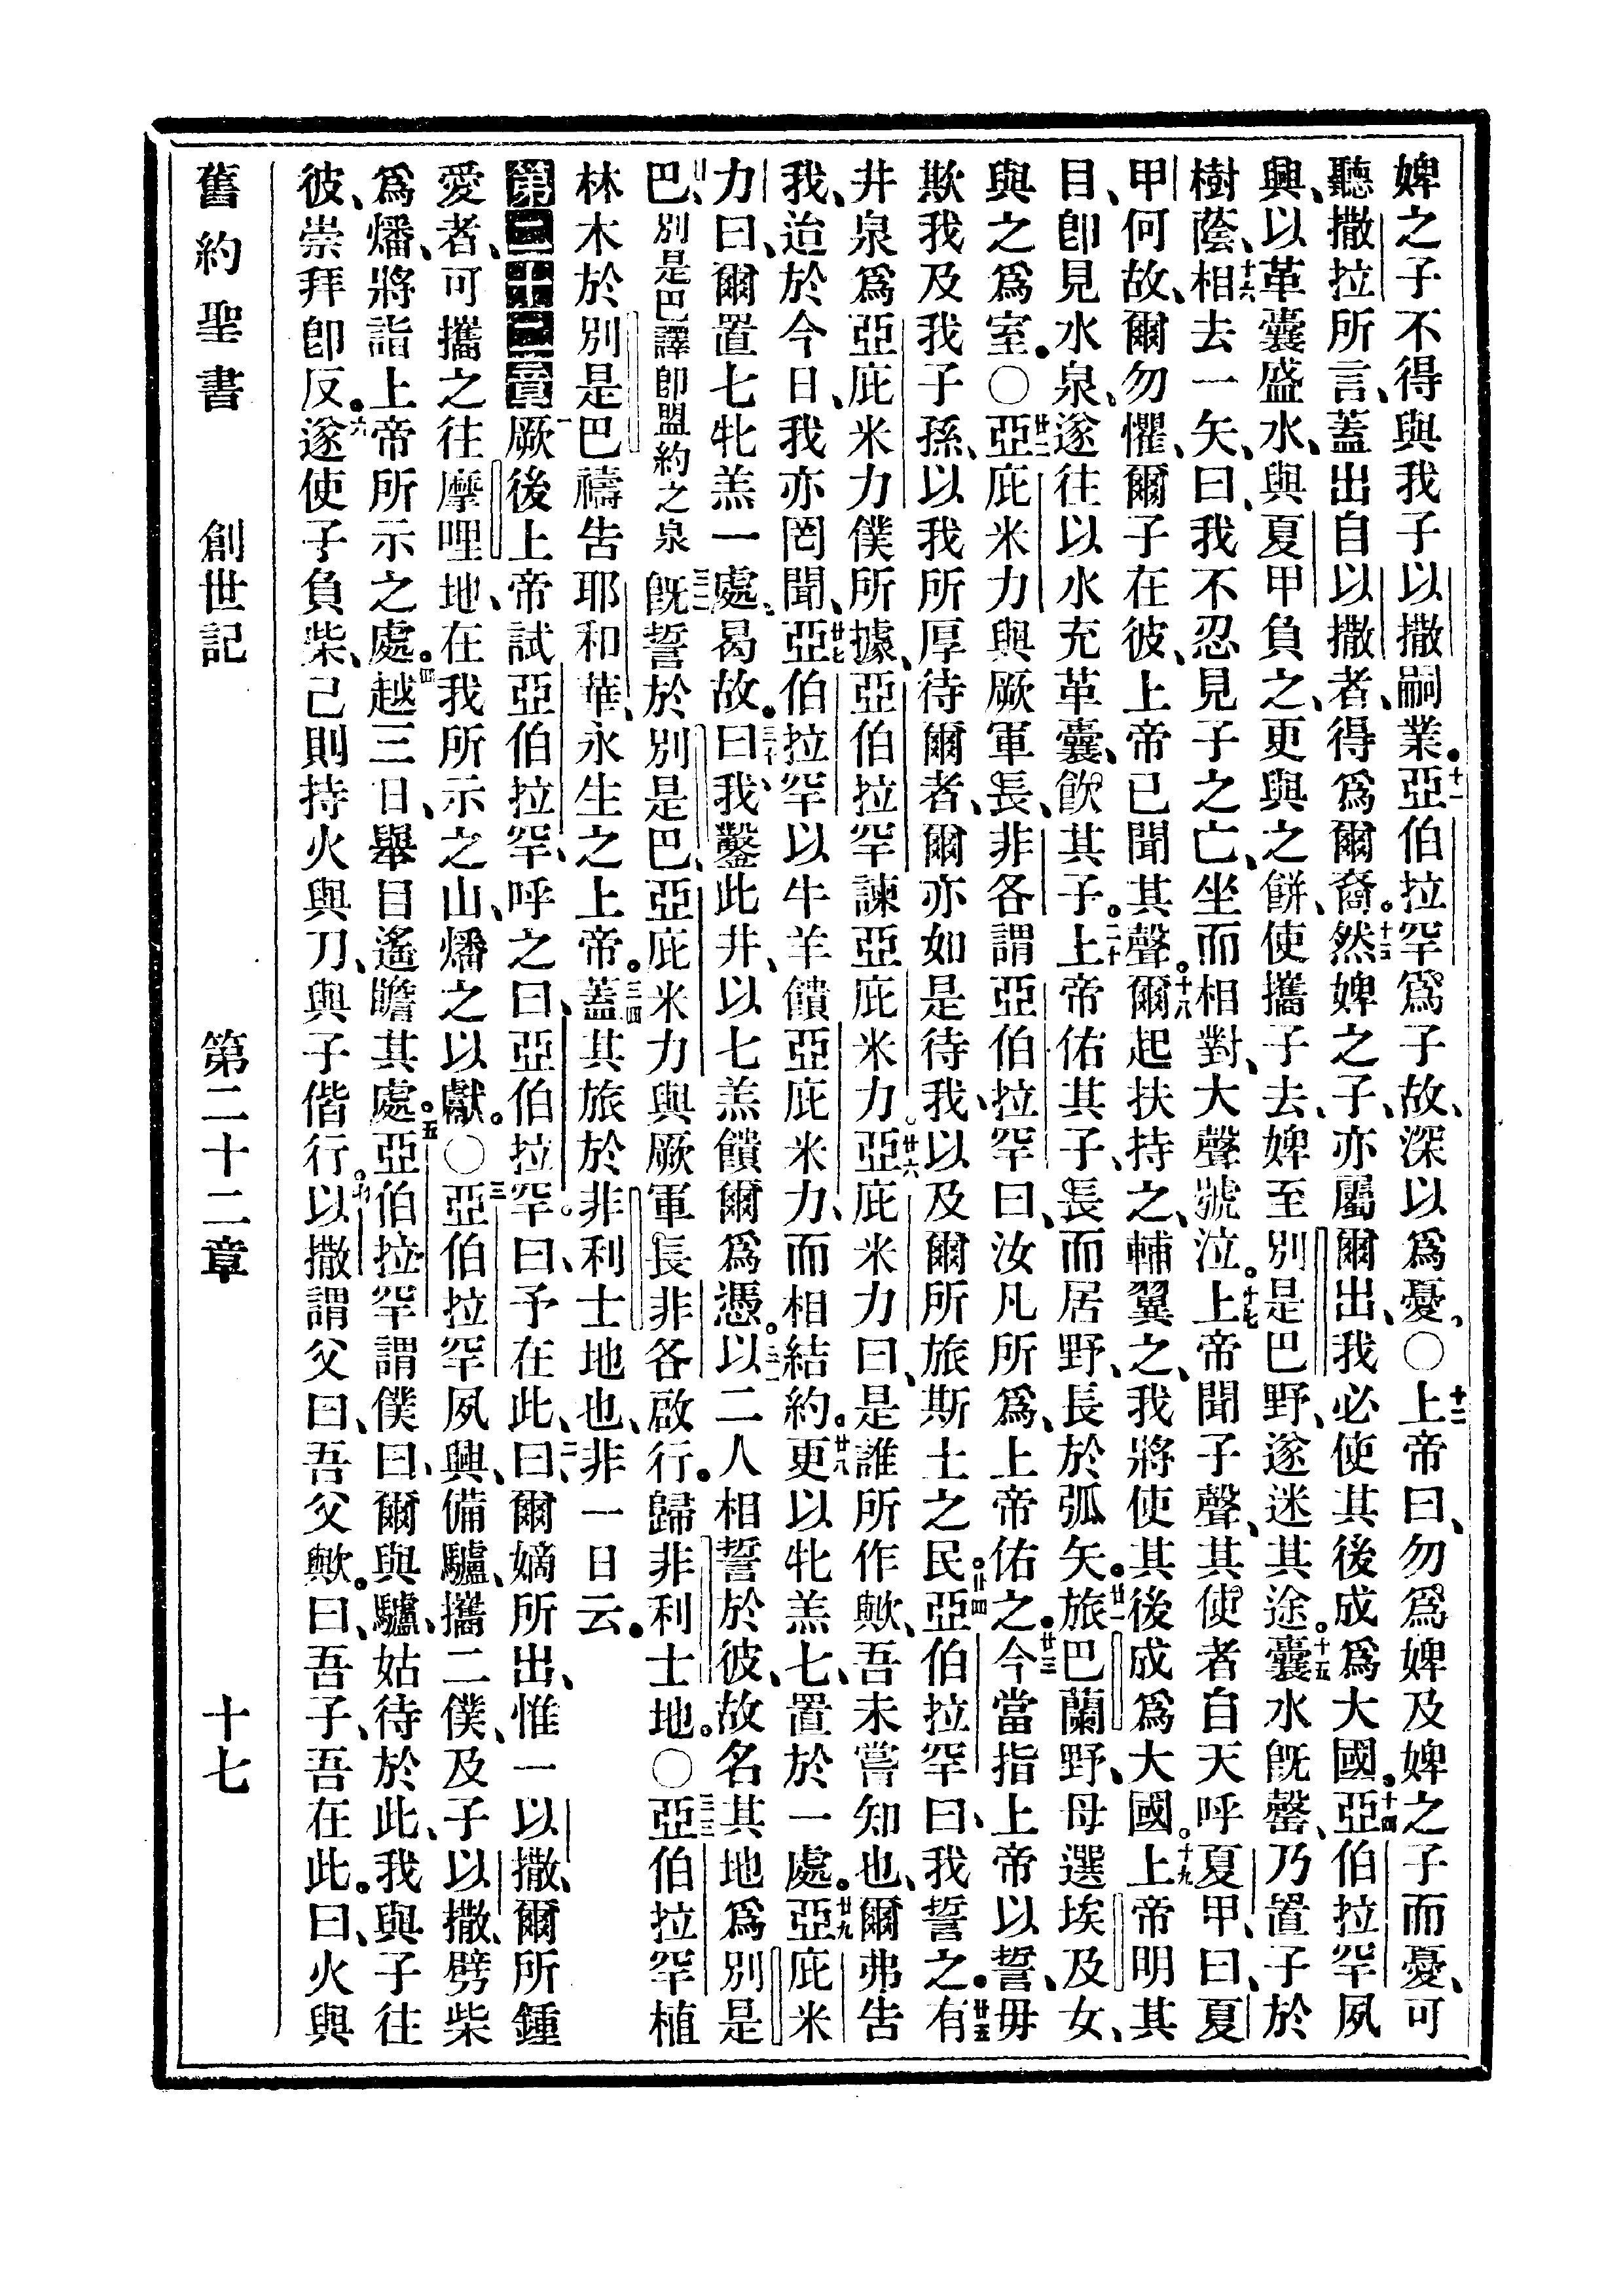 婢之子不得與我子以撒嗣業。十一亞伯拉罕爲子故、深以爲憂、〇十二上帝曰、勿爲婢及婢之子而憂、可
聽撒拉所言、蓋出自以撒者、得爲爾裔。十三然婢之子、亦屬爾出、我必使其後成爲大國。十四亞伯拉罕夙
興、以革囊盛水、與夏甲負之、更與之餅、使攜子去、婢至別是巴野、遂迷其途。十五囊水旣罄、乃置子於
樹蔭、十六相去一矢、曰、我不忍見子之亡、坐而相對、大聲號泣。十七上帝聞子聲、其使者自天呼夏甲、曰、夏
甲何故、爾勿懼、爾子在彼、上帝已聞其聲。十八爾起扶持之、輔翼之、我將使其後成爲大國。十九上帝明其
目、卽見水泉、遂往以水充革囊、飮其子。二十上帝佑其子、長而居野、長於弧矢。廿一旅巴蘭野、母選埃及女、
與之爲室。〇廿二亞庇米力與厥軍長、非各謂亞伯拉罕曰、汝凡所爲、上帝佑之。廿三今當指上帝以誓、毋
欺我及我子孫、以我所厚待爾者、爾亦如是待我、以及爾所旅斯土之民。廿四亞伯拉罕曰、我誓之。廿五有
井泉爲亞庇米力僕所據、亞伯拉罕諫亞庇米力。廿六亞庇米力曰、是誰所作歟、吾未嘗知也、爾弗告
我、迨於今日、我亦罔聞、廿七亞伯拉罕以牛羊饋亞庇米力、而相結約。廿八更以牝羔七、置於一處。廿九亞庇米
力曰、爾置七牝羔一處、曷故。三十曰、我鑿此井、以七羔饋爾爲憑。三一以二人相誓於彼、故名其地爲別是
巴、別是巴譯卽盟約之泉三二旣誓於別是巴、亞庇米力與厥軍長非各啟行。歸非利士地。〇三三亞伯拉罕植
林木於別是巴禱告耶和華、永生之上帝。三四蓋其旅於非利士地也、非一日云。
第二十二章一厥後上帝試亞伯拉罕、呼之曰、亞伯拉罕。曰、予在此、二曰、爾嫡所出、惟一以撒、爾所鍾
愛者、可攜之往摩哩地、在我所示之山、燔之以獻。〇三亞伯拉罕夙興、備驢、攜二僕、及子以撒、劈柴
爲燔、將詣上帝所示之處。四越三日、舉目遙瞻其處。五亞伯拉罕謂僕曰、爾與驢、姑待於此、我與子往
彼、崇拜卽反。六遂使子負柴、己則持火與刀、與子偕行。七以撒謂父曰、吾父歟。曰、吾子、吾在此。曰、火與
舊約聖書　創世記　第二十二章　十七